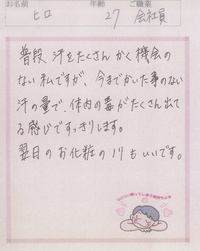 お名前 年齢 ご職業
ヒロ 27 会社員
普段 汗をたくさん かく 機会の
ない私ですが、今までかいた事のない
汗の量で、体内の毒がたくさん出て
る感じですっきりします。
翌日のお化粧のノリもいいです。